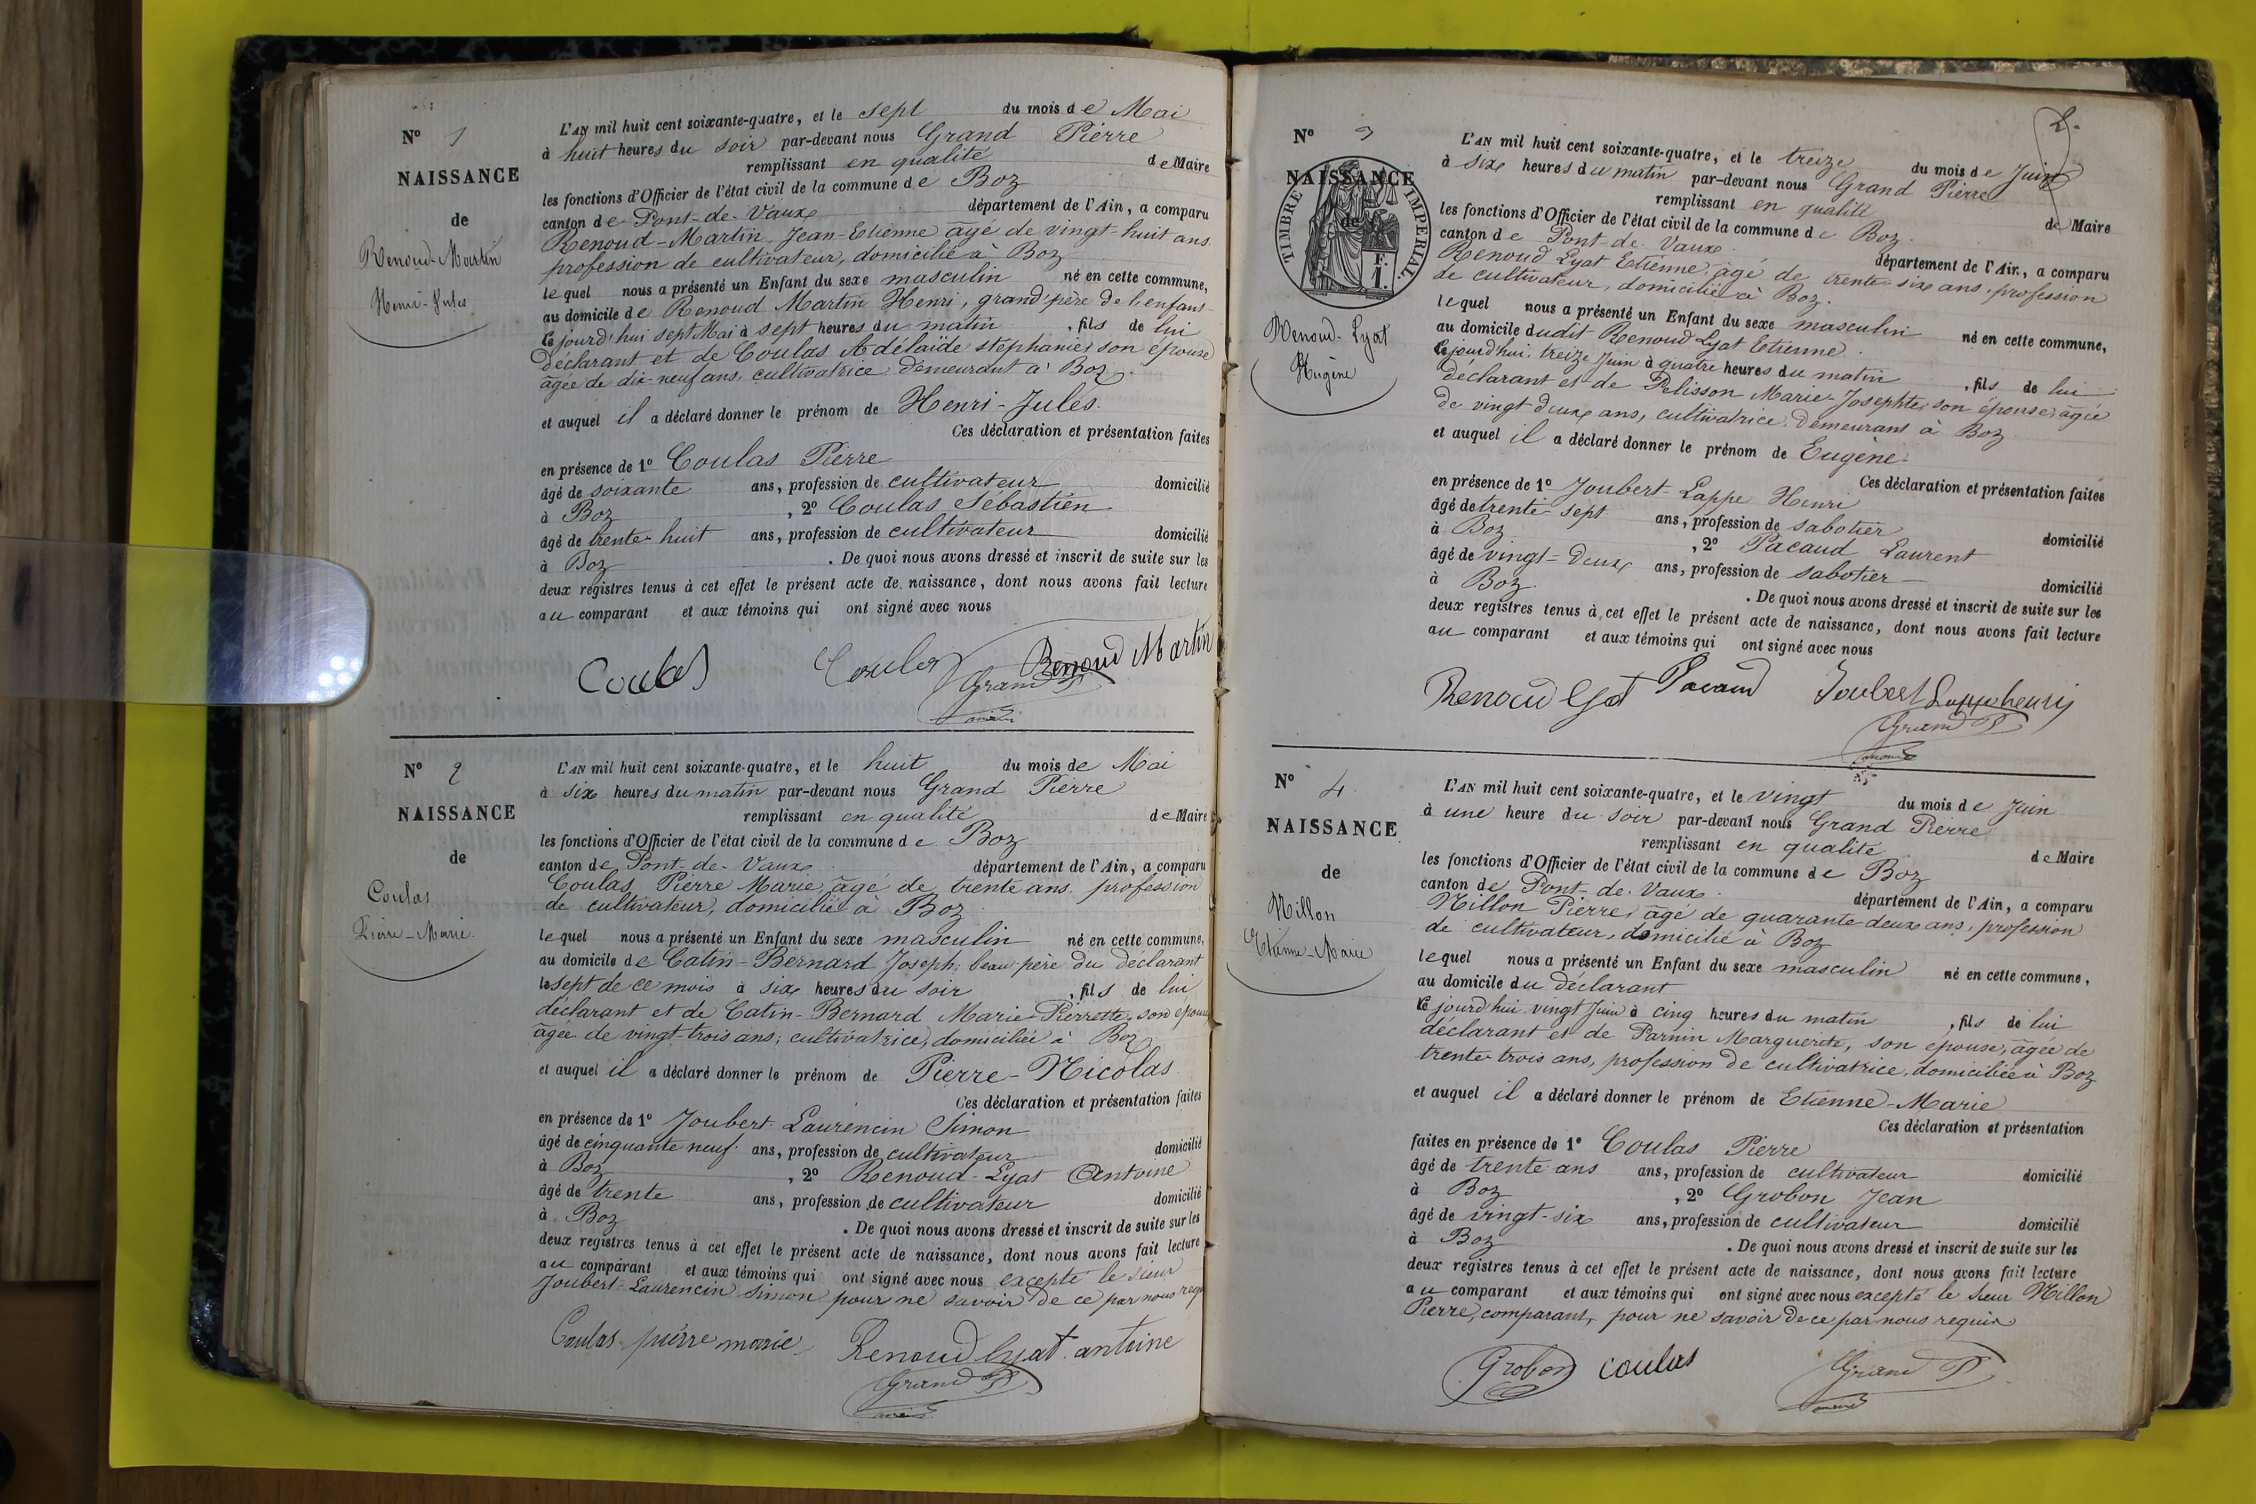 N° 1
NAISSANCE
de
Renoud-Martin
Henri-Jules
L'AN mil huit cent soixante-quatre, et le sept du mois de Mai
à huit heures du soir par-devant nous Grand Pierre
remplissant en qualité de Maire
les fonctions d'Officier de l'état civil de la commune de Boz
canton de Pont-de-Vaux département de l'Ain, a comparu
Renoud-Martin Jean-Etienne âgé de vingt-huit ans
profession de cultivateur, domicilié à Boz
lequel nous a présenté un Enfant du sexe masculin né en cette commune,
au domicile de Renoud Martin Henri, grand'père de l'enfant
cejourd'hui sept Mai à sept heures du matin, fils de lui
déclarant et de Coulas Adélaïde stéphanie, son épouse
âgée de dix-neuf ans, cultivatrice, demeurant à Boz.
et auquel il a déclaré donner le prénom de Henri-Jules.
Ces déclaration et présentation faites
en présence de 1° Coulas Pierre
âgé de soixante ans, profession de cultivateur domicilié
à Boz, 2° Coulas Sébastien
âgé de trente-huit ans, profession de cultivateur domicilié
à Boz. De quoi nous avons dressé et inscrit de suite sur les
deux registres tenus à cet effet le présent acte de naissance, dont nous avons fait lecture
au comparant et aux témoins qui ont signé avec nous
Coulas Coulas Renoud Martin
Grand P
N° 2
NAISSANCE
de
Coulas
Pierre-Marie.
L'AN mil huit cent soixante-quatre, et le huit du mois de Mai
à six heures du matin par-devant nous Grand Pierre
remplissant en qualité de Maire
les fonctions d'Officier de l'état civil de la commune de Boz
canton de Pont-de-Vaux département de l'Ain, a comparu
Coulas Pierre Marie, âgé de trente ans, profession
de cultivateur, domicilié à Boz
lequel nous a présenté un Enfant du sexe masculin né en cette commune,
au domicile de Catin-Bernard Joseph, beau-père du déclarant
le sept de ce mois à six heures du soir, fils de lui
déclarant et de Catin-Bernard Marie-Pierrette, son épouse
âgée de vingt-trois ans, cultivatrice, domiciliée à Boz
et auquel il a déclaré donner le prénom de Pierre-Nicolas
Ces déclaration et présentation faites
en présence de 1° Joubert-Laurencin Simon
âgé de cinquante neuf ans, profession de cultivateur domicilié
à Boz, 2° Renoud-Lyat Antoine
âgé de trente ans, profession de cultivateur domicilié
à Boz. De quoi nous avons dressé et inscrit de suite sur les
deux registres tenus à cet effet le présent acte de naissance, dont nous avons fait lecture
au comparant et aux témoins qui ont signé avec nous excepté le sieur
Joubert-Laurencin Simon pour ne savoir de ce par nous requis
Coulas pierre marie Renoud lyat antoine
Grand P
2.
N° 3
NAISSANCE
de
TIMBRE IMPERIAL
1 F.
Renoud-Lyat
Eugène
L'AN mil huit cent soixante-quatre, et le treize du mois de Juin
à six heures du matin par-devant nous Grand Pierre
remplissant en qualité de Maire
les fonctions d'Officier de l'état civil de la commune de Boz
canton de Pont-de-Vaux département de l'Ain, a comparu
Renoud Lyat Etienne, âgé de trente six ans, profession
de cultivateur, domicilié à Boz.
lequel nous a présenté un Enfant du sexe masculin né en cette commune,
au domicile dudit Renoud Lyat Etienne
cejourd'hui treize Juin à quatre heures du matin, fils de lui
déclarant et de Pelisson Marie-Josephte, son épouse, âgée
de vingt deux ans, cultivatrice, demeurant à Boz
et auquel il a déclaré donner le prénom de Eugène.
Ces déclaration et présentation faites
en présence de 1° Joubert-Lappe Henri
âgé de trente-sept ans, profession de sabotier domicilié
à Boz, 2° Pacaud Laurent
âgé de vingt-deux ans, profession de sabotier domicilié
à Boz. De quoi nous avons dressé et inscrit de suite sur les
deux registres tenus à cet effet le présent acte de naissance, dont nous avons fait lecture
au comparant et aux témoins qui ont signé avec nous
Renoud Lyat Pacaud Joubert Lappe henri
Grand P
N° 4
NAISSANCE
de
Millon
Etienne-Marie
L'AN mil huit cent soixante-quatre, et le vingt du mois de Juin
à une heure du soir par-devant nous Grand Pierre
remplissant en qualité de Maire
les fonctions d'Officier de l'état civil de la commune de Boz
canton de Pont-de-Vaux département de l'Ain, a comparu
Millon Pierre, âgé de quarante deux ans, profession
de cultivateur, domicilié à Boz
lequel nous a présenté un Enfant du sexe masculin né en cette commune,
au domicile du déclarant
cejourd'hui vingt Juin à cinq heures du matin, fils de lui
déclarant et de Parnin Marguerite, son épouse, âgée de
trente-trois ans, profession de cultivatrice, domiciliée à Boz
et auquel il a déclaré donner le prénom de Etienne-Marie
Ces déclaration et présentation
faites en présence de 1° Coulas Pierre
âgé de trente ans ans, profession de cultivateur domicilié
à Boz, 2° Grobon Jean
âgé de vingt-six ans, profession de cultivateur domicilié
à Boz. De quoi nous avons dressé et inscrit de suite sur les
deux registres tenus à cet effet le présent acte de naissance, dont nous avons fait lecture
au comparant et aux témoins qui ont signé avec nous excepté le sieur Millon
Pierre, comparant, pour ne savoir de ce par nous requis
Grobon coulas Grand P